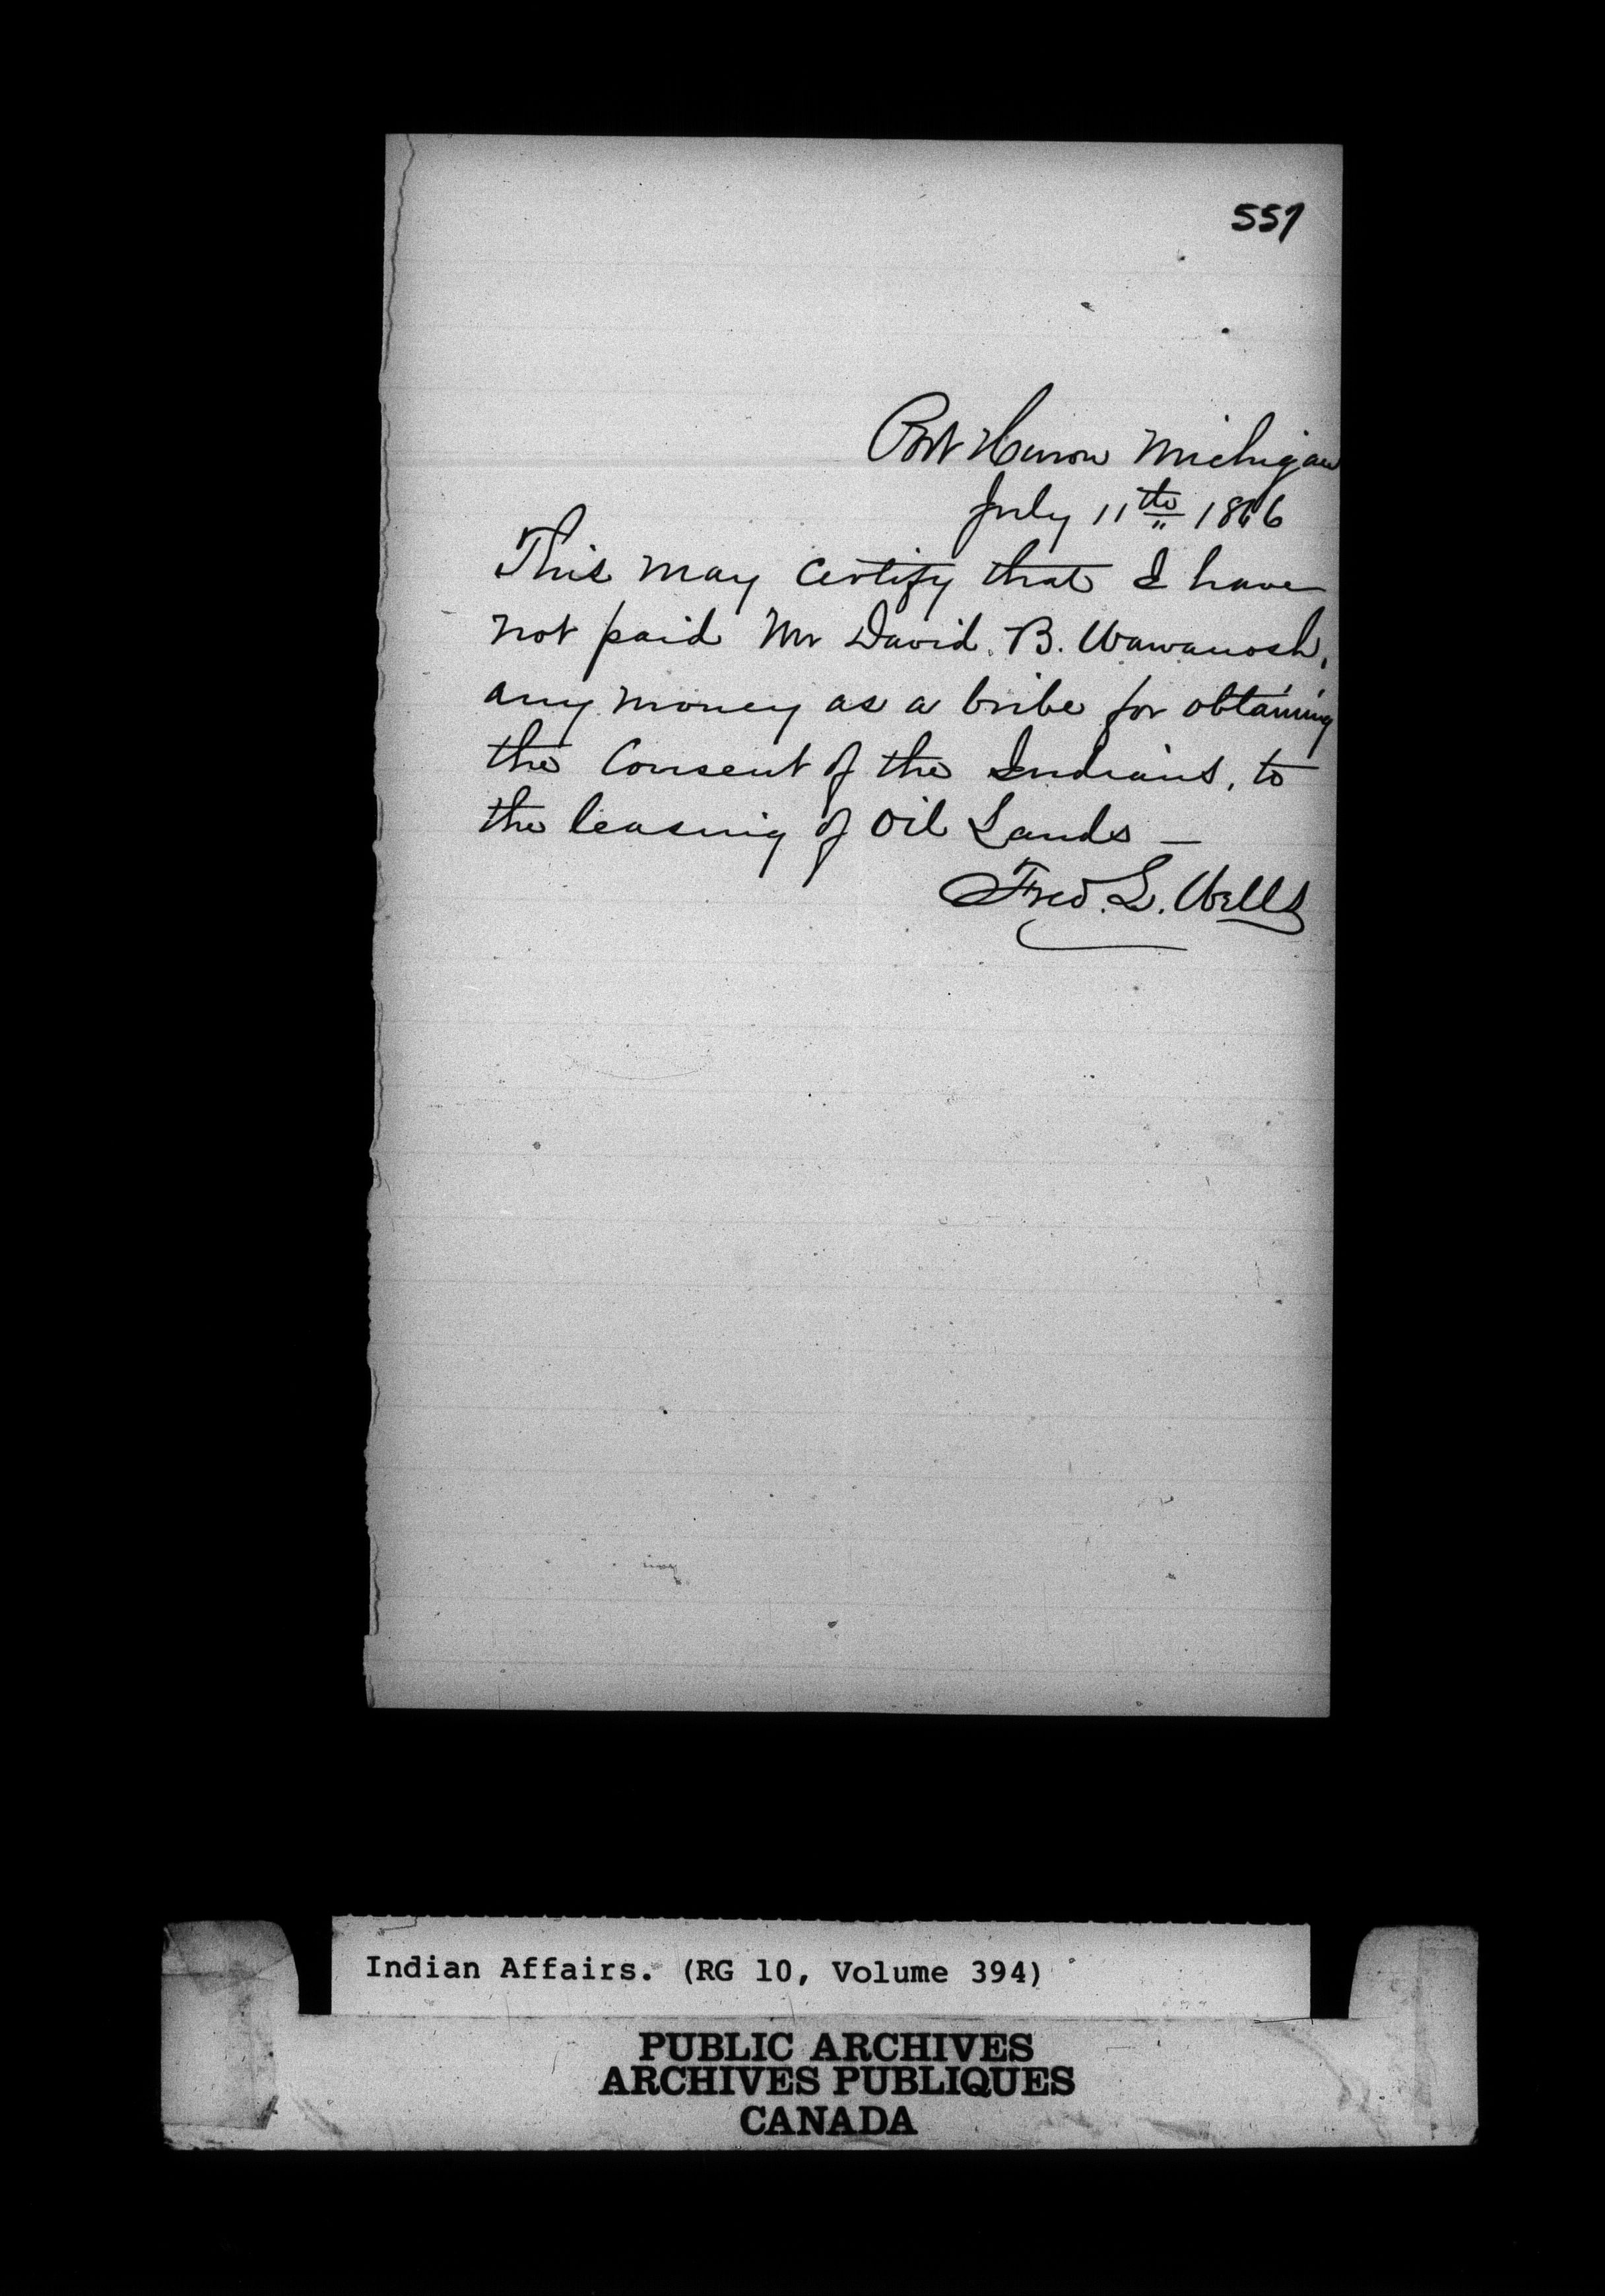 557
Port Huron Michigan
July 11th 1866
This may Certify that I have
not paid Mr David. B. Wawanosh,
any money as a bribe for obtaining
the Consent of the Indians, to
the leasing of Oil Lands —
Fred. L. Wells
Indian Affairs. (RG 10, Volume 394)
PUBLIC ARCHIVES
ARCHIVES PUBLIQUES
CANADA